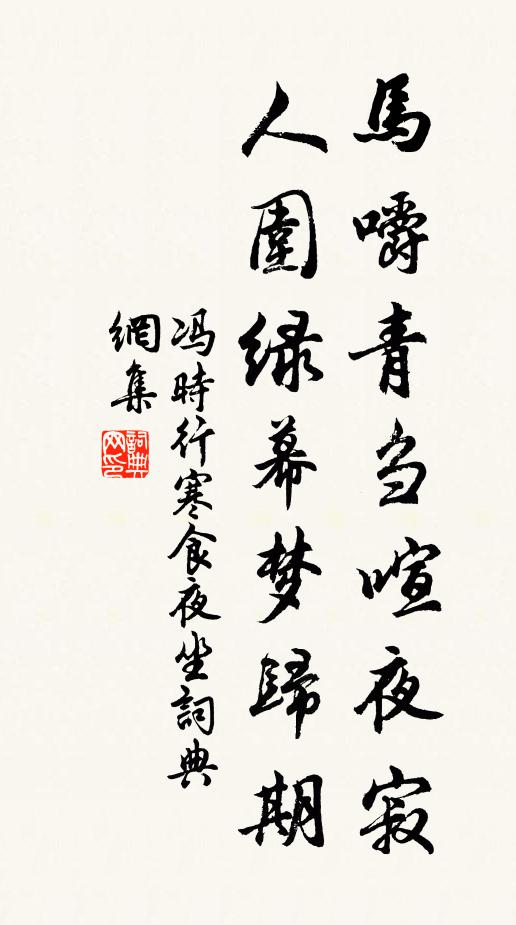 馬嚼青刍喧夜寂
人圍緑幕梦歸期
冯時行寒食夜坐詞典
網集
詞典
网印